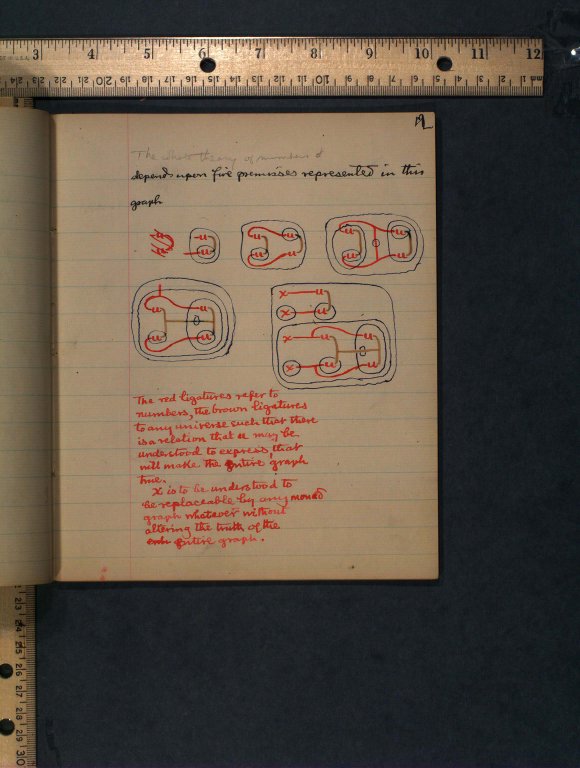 The whole theory of numbers
depends upon five premisses represented in this
graph
u u u u u u u u
u u u u u u
u u x u
u u x u
x u u
x u u
The red ligatures refer to
numbers, the brown ligatures
to any universe such that there
is a relation that u may be
understood to express that
will make the entire graph
true.
X is to be understood to
be replaceable by any monad
graph whatever without
altering the truth of the
entire graph.
3 4 5 6 7 8 9 10 11 12